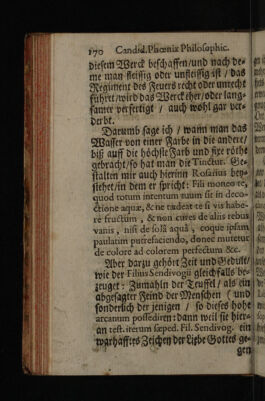 170 Candid. Phœnix Philosophic.
diesem Werck beschaffen / und nach de-
me man fleissig oder unfleissig ist / das
Regiment des Feuers recht oder unrecht
führet / wird das Werck eher / oder lang-
samer verfertigt / auch wohl gar ver-
derbt.
Darumb sage ich / wann man das
Wasser von einer Farb in die andere /
biß auff die höchste Farb und fixe röthe
gebracht / so hat man die Tinctur. Ge-
stalten mir auch hierinn Rosarius bey-
stehet / in dem er spricht: Fili moneo te,
quod totum intentum tuum sit in deco-
ctione aquæ, & ne tædeat te si vis habe-
re fructum, & non cures de aliis rebus
vanis, nisi de solâ aquâ, coque ipsam
paulatim putrefaciendo, donec mutetur
de colore ad colorem perfectum &c.
Aber darzu gehört Zeit und Gedult /
wie der Filius Sendivogii gleichfalls be-
zeuget: Zumahln der Teuffel / als ein
abgesagter Feind der Menschen ( und
sonderlich der jenigen / so dieses hohe
arcanum possediren: dann weil sie hier-
an test. iterum sæped. Fil. Sendivog. ein
warhafftes Zeichen der Liebe Gottes ge-
gen